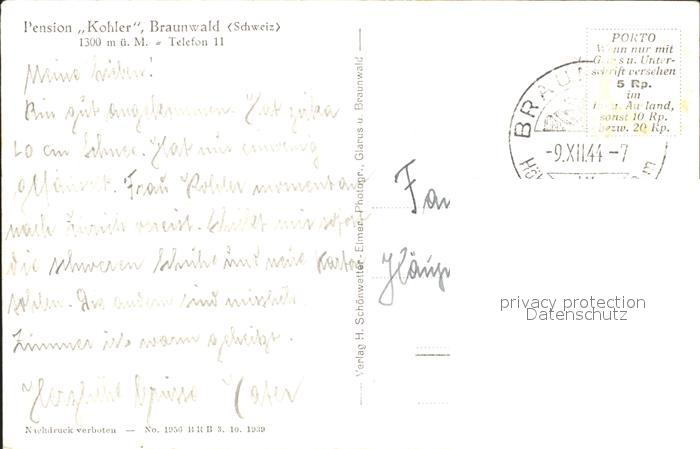 Pension „Kohler“, Braunwald (Schweiz)
1300 m ü. M. - Telefon 11
Meine Lieben!
Bin gut angekommen. Hat zirka
20 cm Schnee. Hat nur ein wenig
Frau Kohler momentan
nach Zürich verreist. Schickt mir sofort
die schweren Schuhe und meine
Die andern sind
Zimmer ist warm geheizt.
Herzliche Grüsse Vater
Nachdruck verboten — No. 1956 B R B 3. 10. 1939
Verlag H. Schönwetter-Elmer, Photogr., Glarus u. Braunwald
PORTO
Wenn nur mit
Gruss u. Unter-
schrift versehen
5 Rp.
im
Ausland,
sonst 10 Rp.
bezw. 20 Rp.
BRAU
-9.XII.44-7
Fa
privacy protection
Datenschutz